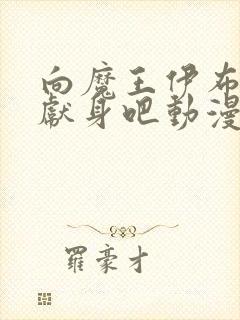 向魔王伊布
獻身吧動漫
羅豪才